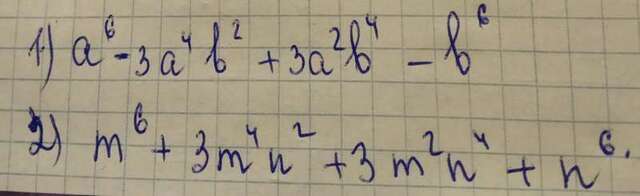 1) a⁶ - 3a⁴b² + 3a²b⁴ - b⁶
2) m⁶ + 3m⁴n² + 3m²n⁴ + n⁶.